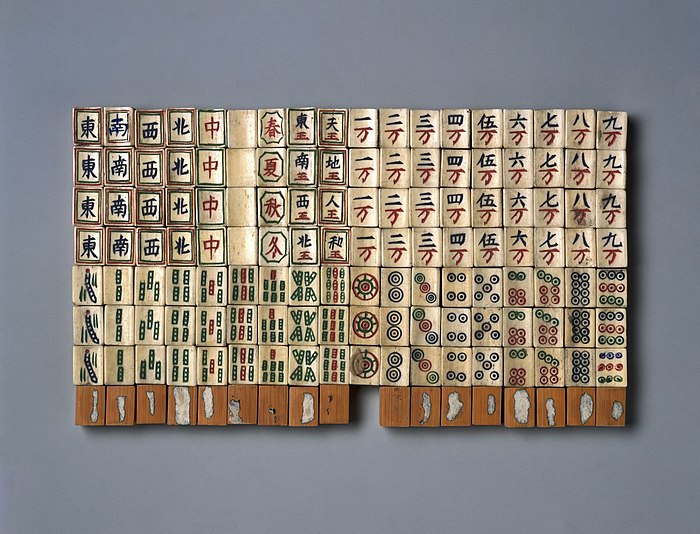 東 南 西 北 中 春 東王 天王 一万 二万 三万 四万 伍万 六万 七万 八万 九万
東 南 西 北 中 夏 南王 地王 一万 二万 三万 四万 伍万 六万 七万 八万 九万
東 南 西 北 中 秋 西王 人王 一万 二万 三万 四万 伍万 六万 七万 八万 九万
東 南 西 北 中 冬 北王 和王 一万 二万 三万 四万 伍万 六万 七万 八万 九万